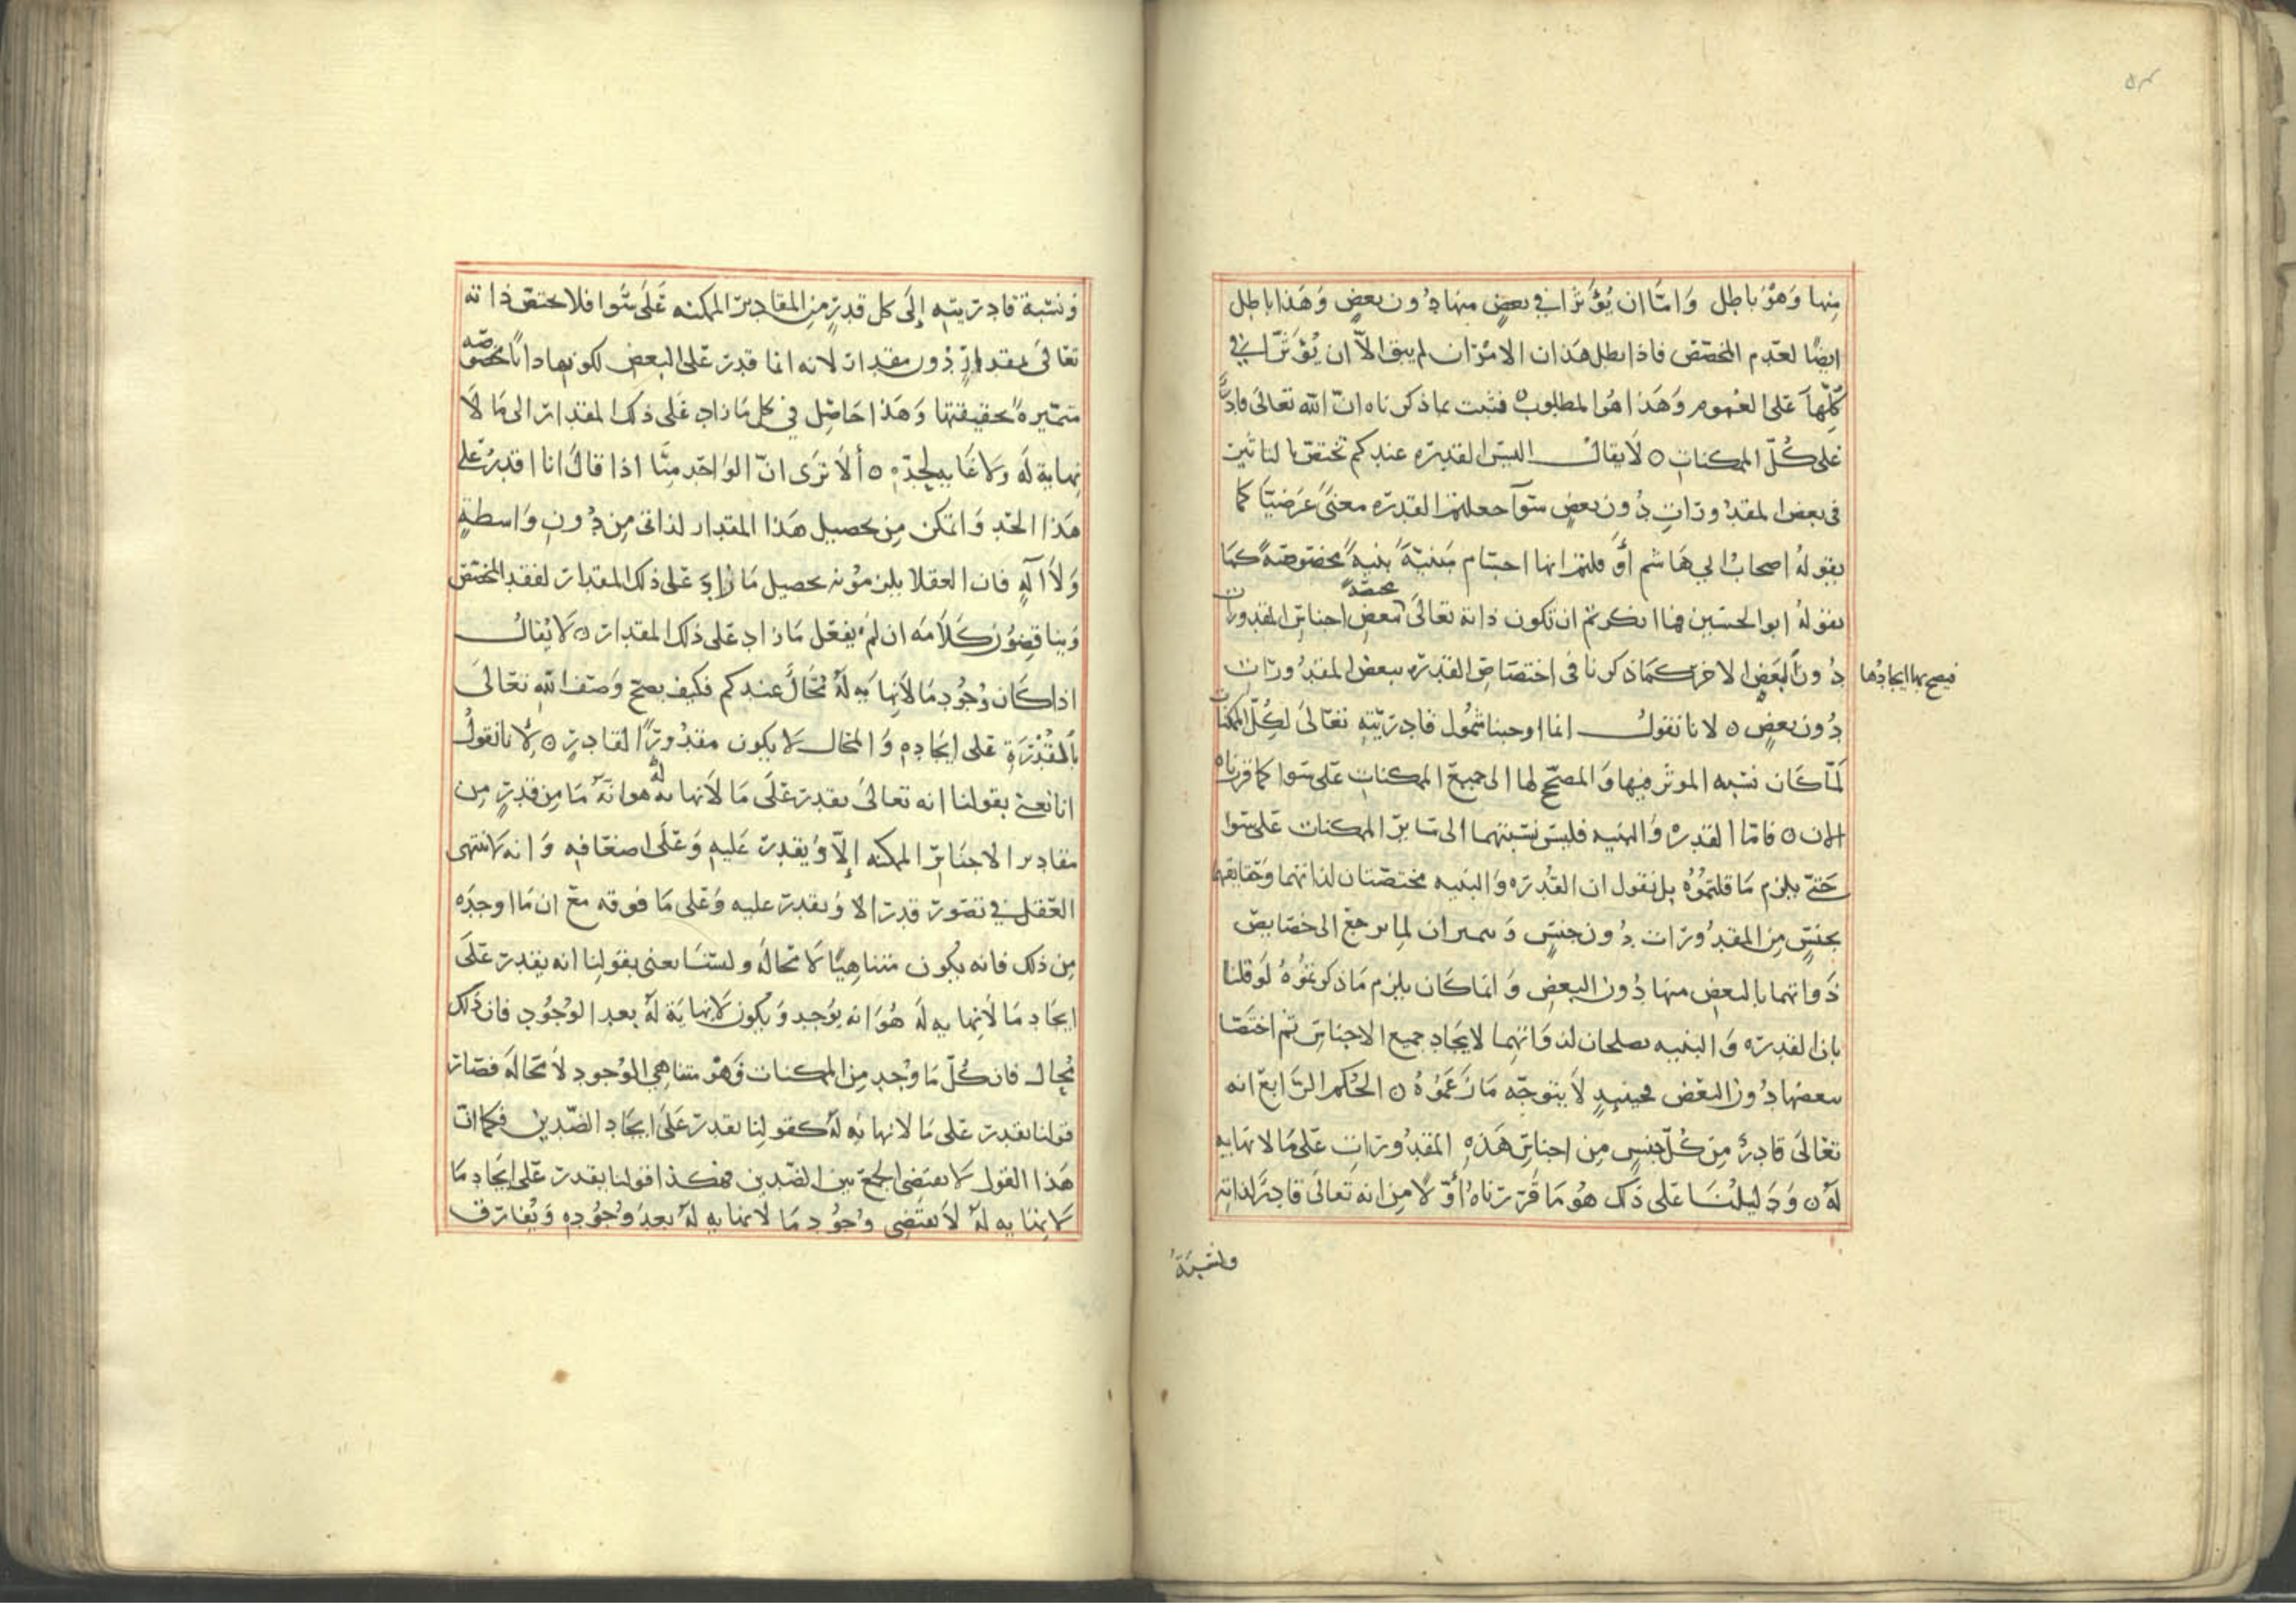 منها وهو باطل واما ان يؤثرا في بعض منها دون بعض وهذا باطل
ايضا لعدم المخصص فاذا بطل هذان الامران لم يبق الا ان يؤثرا في
كلها على العموم وهذا هو المطلوب ه فثبت بما ذكرناه ان الله تعالى قادر
على كل الممكنات ه لا يقال اليس القدره عندكم تختص بالتاثير
في بعض المقدورات دون بعض سوآ جعلتم القدره معنى عرضيا كما
يقوله اصحاب ابي هاشم أو قلتم انها اجسام مبنية بنية مخصوصة كما
يقوله ابو الحسين فما انكرتم ان تكون ذاته تعالى مختصة ببعض اجناس المقدورات
فيصح بها ايجادها
دون البعض الاخر كما ذكرنا في اختصاص القدره ببعض المقدورات
دون بعض ه لانا نقول انما اوجبنا شمول قادريته تعالى لكل الممكنات
لما كان نسبه الموثر فيها والمصحح لها الى جميع الممكنات على سوا كما قررناه
الان ه فاما القدره والبنيه فليس نسبتهما الى سائر الممكنات على سوا
حتى يلزم ما قلتموه بل نقول ان القدره والبنيه مختصتان لذاتهما وحقايقهما
بجنس من المقدورات دون جنس و لما يرجع الى خصايص
ذواتهما بالبعض منها دون البعض وانما كان يلزم ما ذكرتموه لو قلنا
بان القدره والبنيه يصلحان لذواتهما لايجاد جميع الاجناس ثم اختصا
ببعضها دون البعض فحينيذ لا يتوجه ما زعموه ه الحكم الرابع انه
تعالى قادر من كل جنس من اجناس هذه المقدورات على ما لا نهايه
له ه ودليلنا على ذلك هو ما قررناه أولا من انه تعالى قادر لذاته
ونسبة
ونسبة قادريته إلى كل قدر من المقادير الممكنه على سوا فلا تختص ذاته
تعالى بمقدار دون مقدار لانه انما قدر على البعض لكونها ذاتا مخصوصه
متميزة بحقيقتها وهذا حاصل في كل ما زاد على ذلك المقدار الى ما لا
نهاية له ولا غايه لحده ه ألا ترى ان الواحد منا اذا قال انا اقدر على
هذا الحد واتمكن من تحصيل هذا المقدار لذاتي من دون واسطة
ولا آلة فان العقلا يلزمونه تحصيل ما زاد على ذلك المقدار لفقد المخصص
ويناقضون كلامه ان لم يفعل ما زاد على ذلك المقدار ه لا يقال
اذا كان وجود ما لا نهايه له محال عندكم فكيف يصح وصف الله تعالى
بالقدرة على ايجاده والمحال لا يكون مقدورا لقادر ه لانا نقول
انا نعني بقولنا انه تعالى يقدر على ما لا نهايه له هو انه ما من قدر من
مقادير الاجناس الممكنه إلا ويقدر عليه وعلى اضعافه وانه لا ينتهى
العقل في تصور قدر الا ويقدر عليه وعلى ما فوقه مع ان ما اوجده
من ذلك فانه يكون متناهيا لا محاله ولسنا نعنى بقولنا انه يقدر على
ايجاد ما لا نهايه له هو انه يوجد ويكون لا نهاية له بعد الوجود فان ذلك
محال فان كل ما وجد من الممكنات فهو متناهي الوجود لا محاله فصار
قولنا يقدر على ما لا نهايه له كقولنا يقدر على ايجاد الضدين فكما ان
هذا القول لا يقتضى الجمع بين الضدين فهكذا قولنا يقدر على ايجاد ما
لا نهايه له لا يقتضى وجود ما لا نهايه له بعد وجوده ويفارق